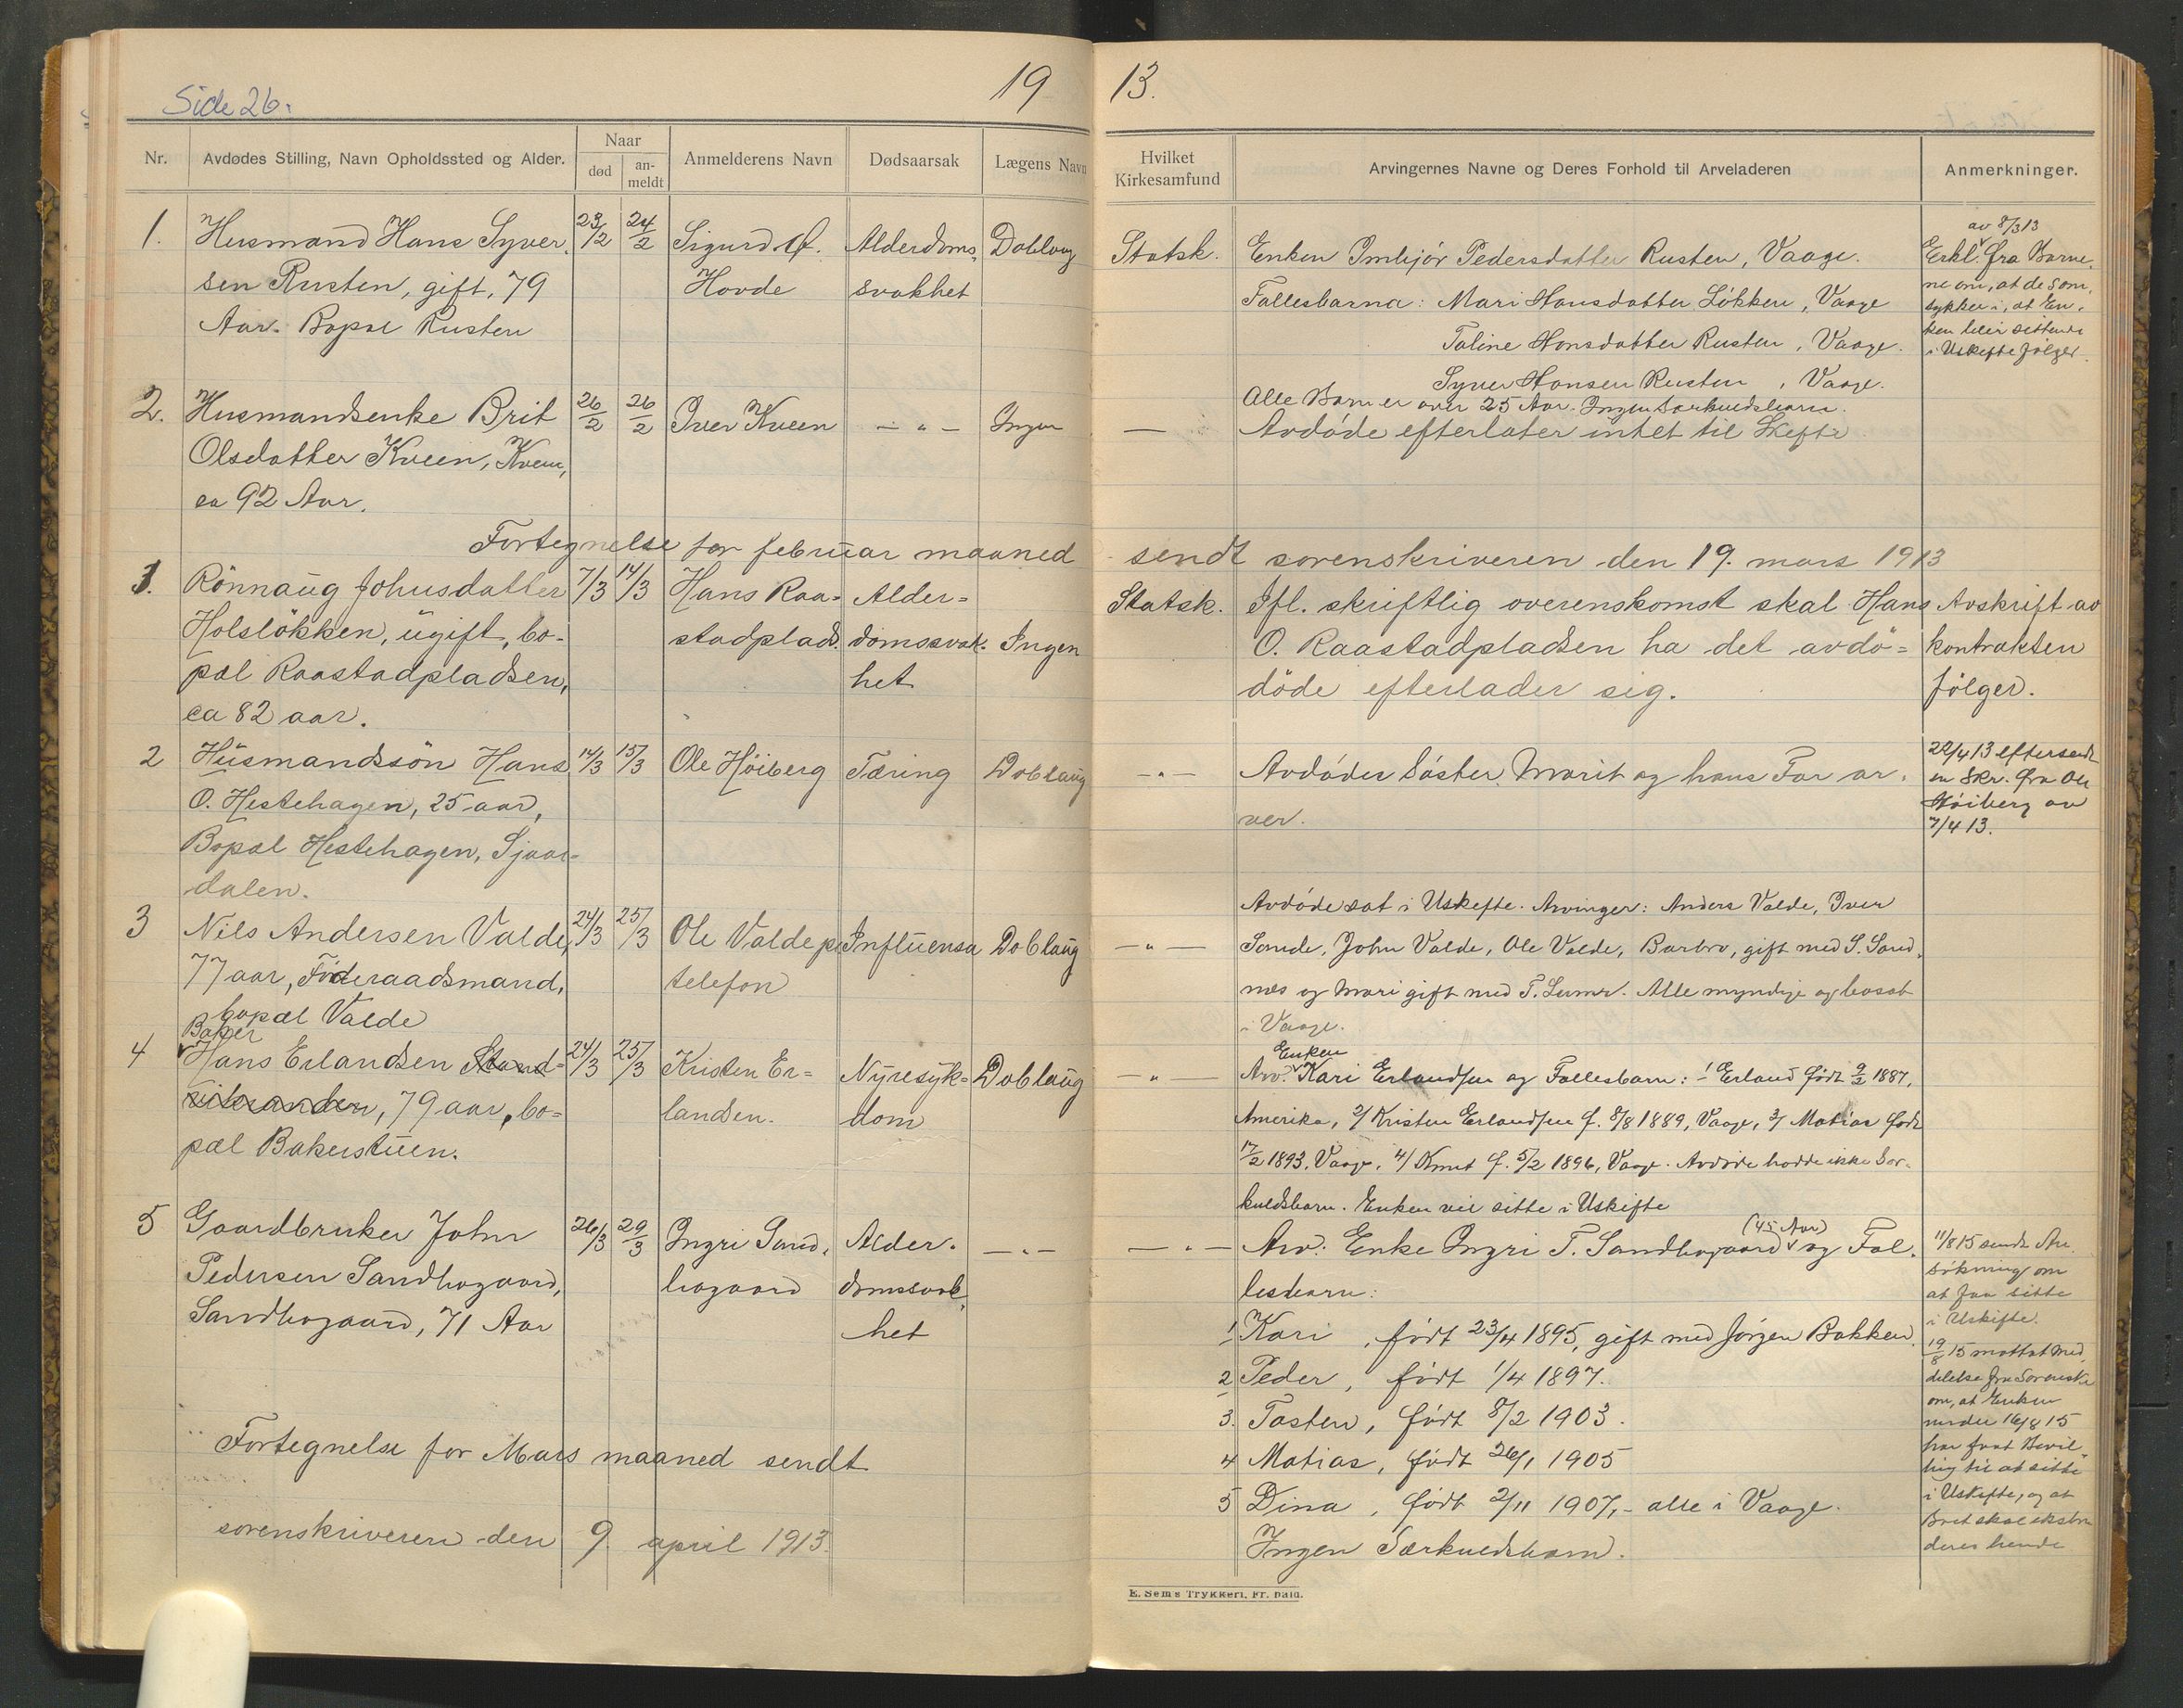 Side 26.
19 13.
Nr.
Avdødes Stilling, Navn Opholdssted og Alder.
Naar
død
an-
meldt
Anmelderens Navn
Dødsaarsak
Lægens Navn
Hvilket
Kirkesamfund
Arvingernes Navne og Deres Forhold til Arveladeren
Anmerkninger.
1.
Husmand Hans Syver
sen Rusten, gift, 79
Aar. Bopæl Rusten
23/2
24/2
Sigurd
Hovde
Alderdoms
svakhet
Doblong
Statsk.
Enken Imbjør Pedersdatter Rusten, Vaage.
Fællesbarna: Mari Hansdatter Løkken, Vaage
Taline Hansdatter Rusten, Vaage.
Syver Hansen Rusten, Vaage.
Alle Barn er over 25 Aar. Ingen Særkuldsbarn.
av 8/3 13
Erkl. fra Barne
ne om, at de sam
tykker i, at En
ken blir sittende
i Uskifte følger.
2.
Husmandsenke Brit
Olsdatter Kveen, Kveen,
ca 92 Aar.
26/2
26/2
Iver Kveen
— " —
Ingen
—
Avdøde efterlater intet til Skifte
Fortegnelse for februar maaned sendt sorenskriveren den 19. mars 1913
1.
Rönnaug Johusdatter
Holslökken, ugift, bo-
pæl Raastadpladsen,
ca 82 aar.
7/3
14/3
Hans Raa-
stadplads.
Alder-
domssvak-
het
Ingen
Statsk.
Ifl. skriftlig overenskomst skal Hans
O. Raastadpladsen ha det avdö-
döde efterlader sig.
Avskrift av
kontrakten
følger.
2
Husmandssön Hans
O. Hestehagen, 25 aar,
Bopæl Hestehagen, Sjoar-
dalen.
14/3
15/3
Ole Höiberg
Tæring
Doblaug
— " —
Avdødes Søster Marit og hans Far ar
ver.
22/4 13 eftersendt
en Skr. fra Ole
Høiberg av
7/4 13.
3
Nils Andersen Valde,
77 aar, Föderaadsmand,
bopæl Valde
24/3
25/3
Ole Valde pr
telefon
Influensa
Doblaug
— " —
Avdøde sat i Uskifte. Arvinger: Anders Valde, Iver
Sande, John Valde, Ole Valde, Barbro, gift med S. Sand
næs og Mari gift med T. Alle myndige og bosat
i Vaage.
4
Baker
Hans Erlandsen
79 aar, bo-
pæl Bakerstuen.
24/3
25/3
Kristen Er-
landsen.
Nyresyk-
dom
Doblaug
— " —
Enken
Arv. Kari Erlandsen og Fællesbarn: 1/ Erland født 9/2 1887,
Amerika, 2/ Kristen Erlandsen f. 8/8 1889, Vaage, 3/ Matias født
17/2 1893, Vaage. 4/ Knut f. 5/2 1896, Vaage. Avdøde hadde ikke Sær-
kuldsbarn. Enken vil sitte i Uskifte
5
Gaardbruker John
Pedersen Sandbogaard,
Sandbogaard, 71 Aar
26/3
29/3
Ingri Sand
bogaard
Alder-
domssvak
het
— " —
— " —
Arv: Enke Ingri T. Sandbogaard (45 Aar) og Fæl
lesbarn:
1 Kari, født 23/4 1895, gift med Jørgen Bakken
2 Peder, født 1/4 1897.
3. Tosten, født 8/2 1903.
4 Matias, født 26/1 1905
5 Dina, født 2/11 1907, - alle i Vaage.
Ingen Særkuldsbarn.
11/8 15 sendt An
søkning om
at faa sitte
i Uskifte.
19/8 15 mottat Med
delelse fra Sorenskr
om, at Enken
under 16/8 15
har faat Bevil
ling til at sitte
i Uskifte, og at
Boet skal ekstra
deres hende
Fortegnelse for Mars maaned sendt
sorenskriveren den 9. april 1913.
E. Sems Trykkeri, Fr. hald.